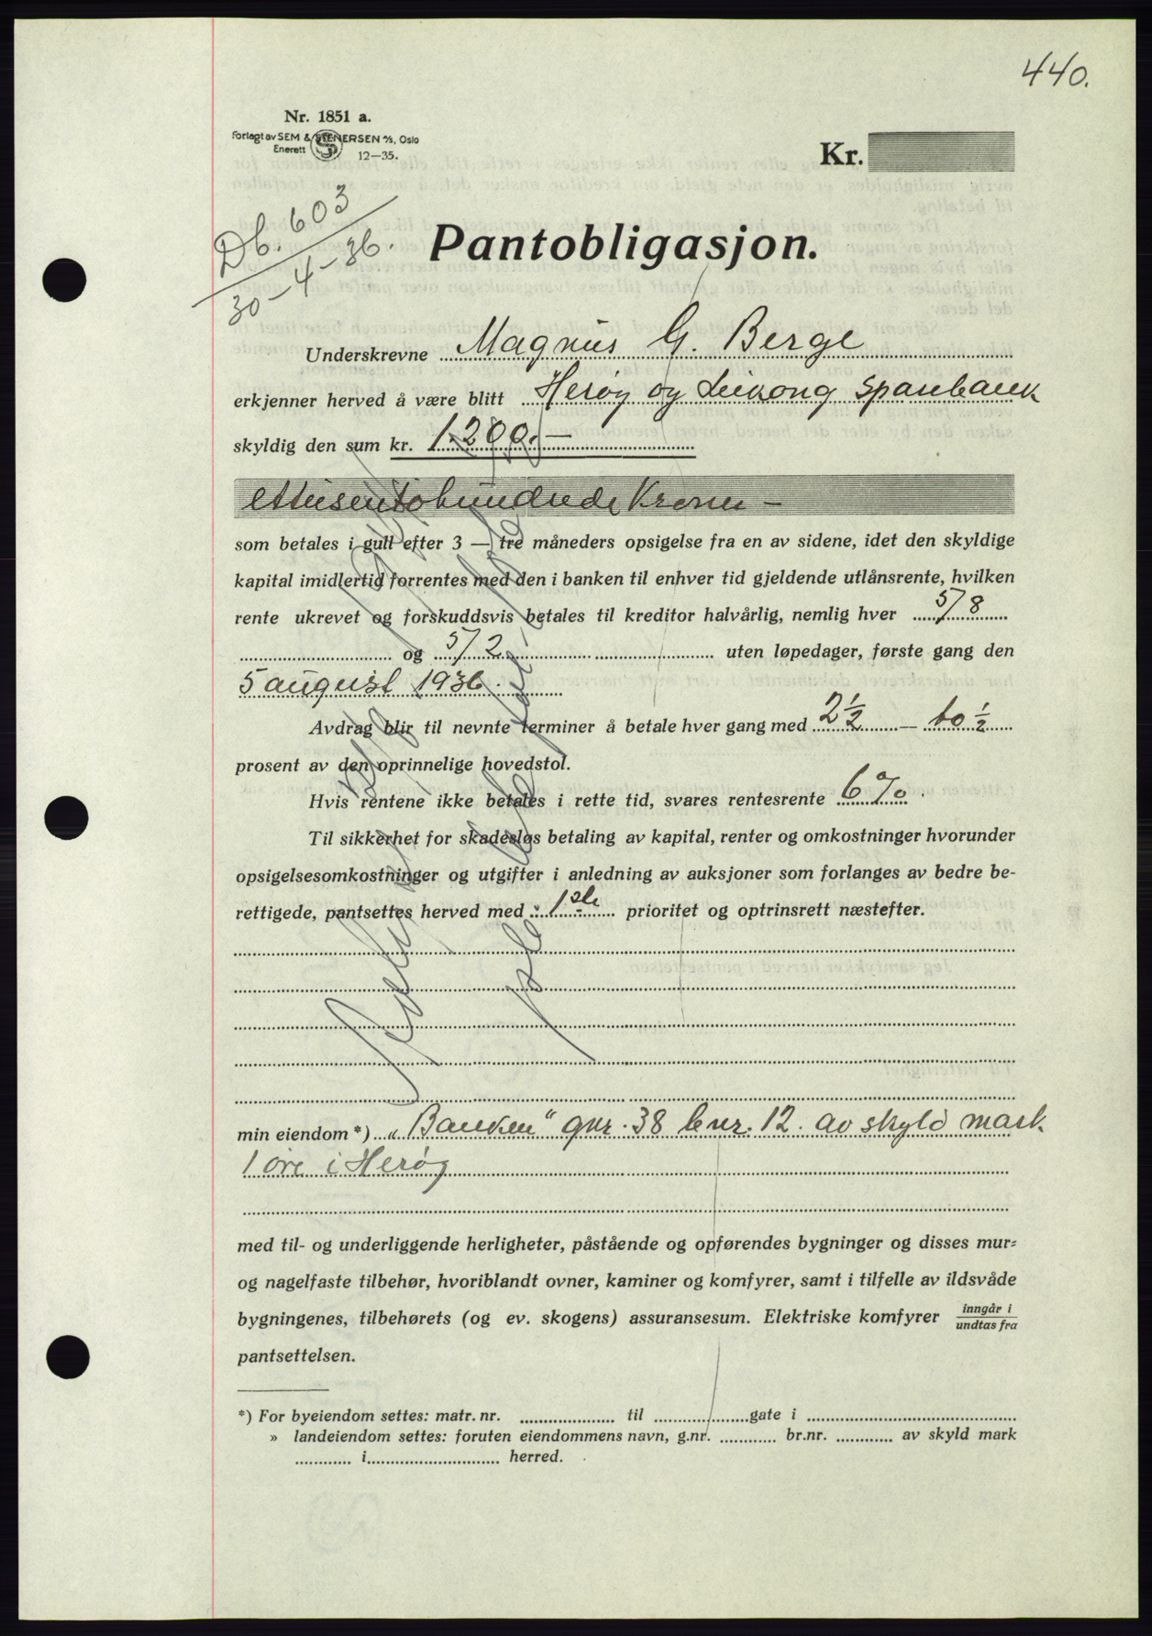 440.
Nr. 1851 a.
Forlagt av SEM & STENERSEN A/S, Oslo
Enerett 12—35.
Kr.
Db. 603
30-4-36.
Pantobligasjon.
Underskrevne Magnus G. Berge
erkjenner herved å være blitt Herøy og Leikong Sparebank
skyldig den sum kr. 1.200.—
ettusentohundrede Kroner —
som betales i gull efter 3 — tre måneders opsigelse fra en av sidene, idet den skyldige
kapital imidlertid forrentes med den i banken til enhver tid gjeldende utlånsrente, hvilken
rente ukrevet og forskuddsvis betales til kreditor halvårlig, nemlig hver 5/8
og 5/2 uten løpedager, første gang den
5 august 1936.
Avdrag blir til nevnte terminer å betale hver gang med 2 1/2 — to 1/2
prosent av den oprinnelige hovedstol.
Hvis rentene ikke betales i rette tid, svares rentesrente 6 %.
Til sikkerhet for skadesløs betaling av kapital, renter og omkostninger hvorunder
opsigelsesomkostninger og utgifter i anledning av auksjoner som forlanges av bedre be-
rettigede, pantsettes herved med 1ste prioritet og optrinsrett næstefter.
min eiendom *) "Banken" gnr. 38 bnr. 12. av skyld mark
1 øre i Herøy
med til- og underliggende herligheter, påstående og opførendes bygninger og disses mur-
og nagelfaste tilbehør, hvoriblandt ovner, kaminer og komfyrer, samt i tilfelle av ildsvåde
bygningenes, tilbehørets (og ev. skogens) assuransesum. Elektriske komfyrer inngår i / undtas fra
pantsettelsen.
*) For byeiendom settes: matr. nr. til gate i
» landeiendom settes: foruten eiendommens navn, g.nr. br.nr. av skyld mark
i herred.